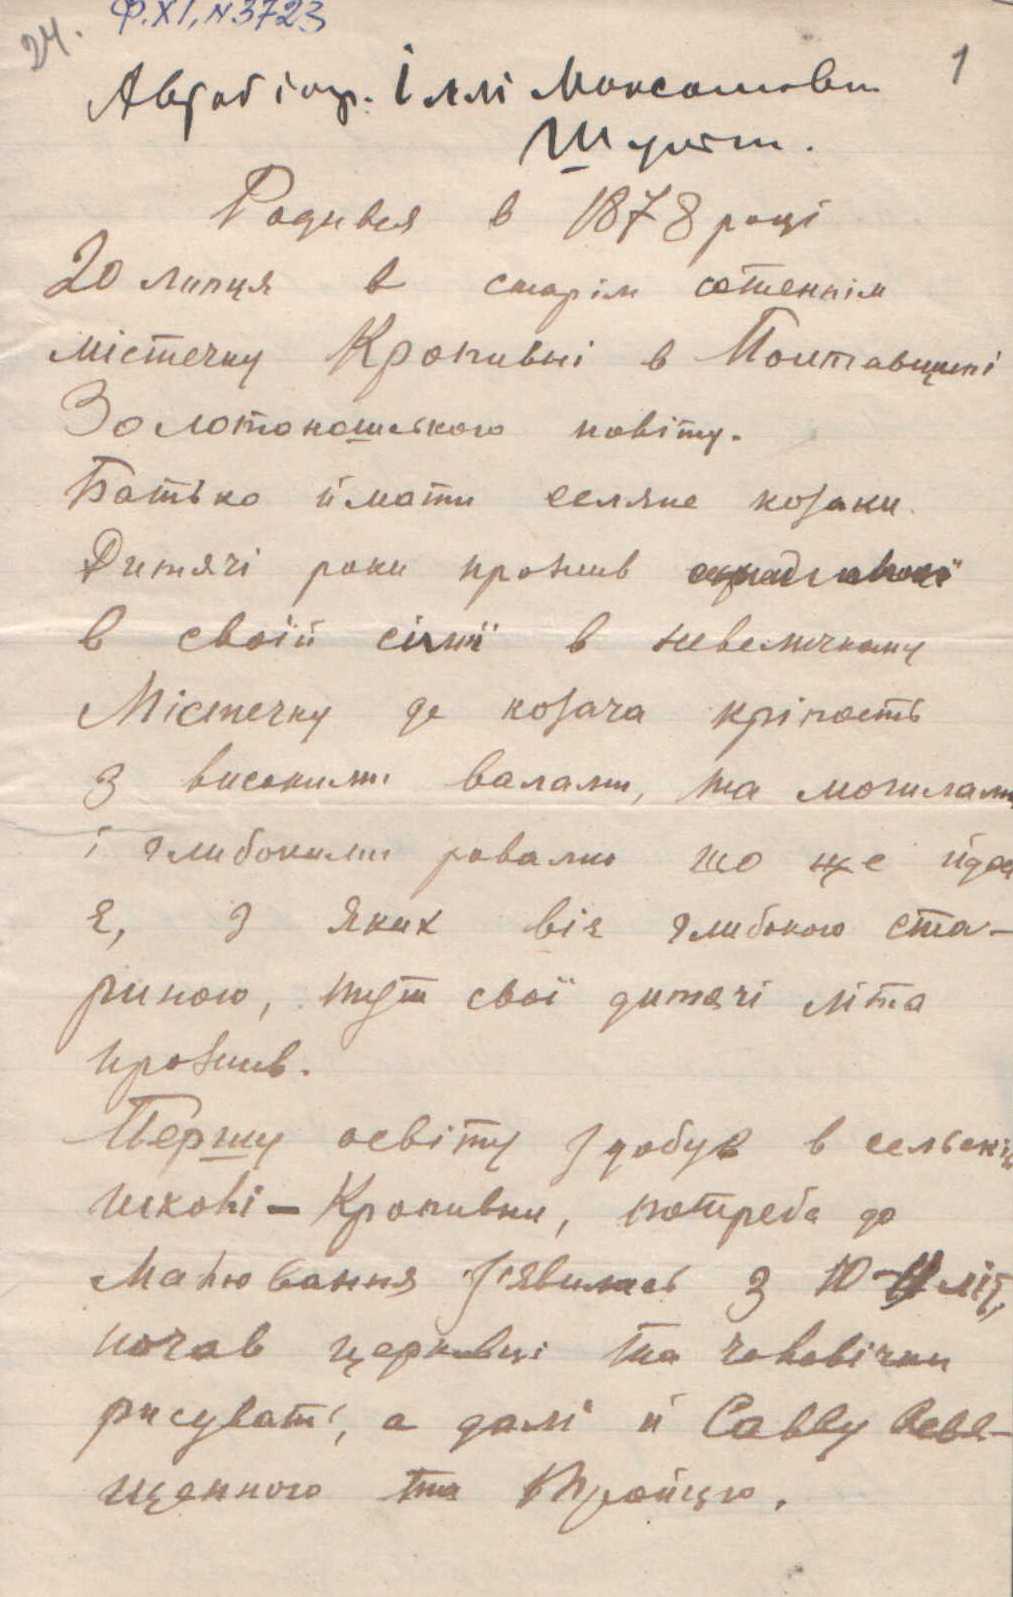 24.
Ф.XI, N3723
1
Автобіогр. Іллі Максимович
Шульги.
Родився в 1878 році
20 липця в старім сотеннім
містечку Кропивні в Полтавщині
Золотоношського повіту.
Батько й мати селяне козаки.
Дитячі роки прожив
в своїй сімї в невеличкому
Містечку де козача кріпость
з високими валами, та могилами
і глибокими ровами що ще йдоси
є, з яких віє глибокою ста-
риною, тут свої дитячі літа
прожив.
Першу освіту здобув в сельскій
школі – Кропивни, потреба до
Малювання зʼявилась з 10-11 літ,
почав церковці та чоловічки
рисувать, а далі й Савву Освя-
щенного та Тройцю.